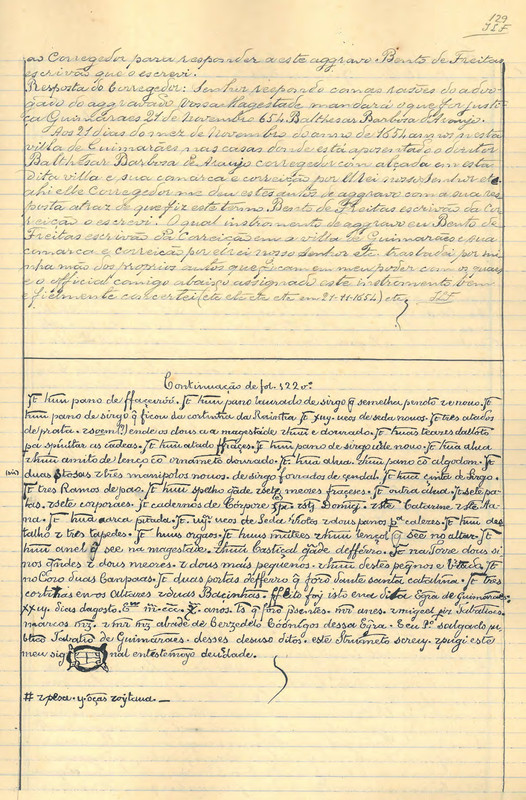 129
ao Corregedor para responder a este aggravo. Bento de Freitas
escrivão que o escrevi.
Resposta do Corregedor: Senhor respondo com as rasões do advo-
gado do aggravado Vossa Magestade mandará o que for justi-
ça Guimaraes 21 de Novembro 654 Balthesar Barbosa de Araujo.
Aos 21 dias do mez de Novembro do anno de 1654 annos nesta
villa de Guimarães nas casas donde está aposentado o doutor
Balthesar Barbosa de Araujo corregedor com alçada em esta
dita villa e sua comarca e correição por El Rei nosso Senhor et
ahi elle Corregedor me deu estes autos de aggravo com a sua res
posta atraz de que fiz este termo. Bento de Freitas escrivão da Cor
reição o escrevi. O qual instromento de aggravo eu Bento de
Freitas escrivão da Correição em a villa de Guimarães e sua
comarca e correição por el rei nosso senhor etc. trasladei por mi
nha mão dos proprios autos que ficam em meu poder com os quaes
e o official comigo abaixo assignado este instromento bem
e fielmente concertei (etc etc etc etc em 21-11-1654) etc.
Continuação de fol. 122 vº
It huũ pano de ffaçeiróo. It huũ pano laurado de sirgo q̃ semelha penoto e nouo. It
huũ pano de sirgo q̃ ficou da cortinha da Rainha It xuy. ueos de seda nouos. It tres atados
de prata. ende os dous a a magestade e huũ e dourado. It huũs teares da loto
pa as cadeas. It huũ atado ffrãçes. It huũ pano de sirgo de nouo. It hũa alua
e huũ amito de lenço cõ ornamẽto dourado. It hũa alua. e huũ pano cõ algodom. It
(sic) duas e tres manipolos nouos. de sirgo forrados de çendal. It hũa çinta de sirgo.
It tres Ramos de pao. It huũ spelho gãde e sete meores frãçeses. It outra alua. It sete pa-
tas. e sete corporaes. It cadernos de Corpore Xpi. e stj Domiçi. e ste Catarine e ste Ma-
na. It hũa arca pĩtada. It ueos de Seda rhotos e dous pano pa calezes. It huũ de
talho e tres tapedes. It huũs orgãos. It huũs mãtees e huũ lençol q̃ see no altar. It
huũ anel q̃ see na magestade. e huũ Castiçal gãde defferro. It na Torre dous si
nos gãdes e dous meores. e dous mais pequenos. e huũ destes peq̃nos e It
no Coro duas Canpaas. It duas portas defferro q̃ forõ dante santa catalina. It tres
cortinhas en os altares e duas Bacinhas. Esto foj isto ena dita Egrja de Guimarães
xxuy. dias dagosto, Era m. cccc. x. anos. ts q̃ forõ presentes. mr anes. e migeel piz Taballiões
marcos mz. e mr mz abade de Cerzedelo Coonigos dessa Egrja. E eu Po. salgado pu
blico Tabaliõ de Guimaraes. desses desuso ditos. este Strumẽto screuy. e pugi este
meu sig nal en testemoyo deuerdade.